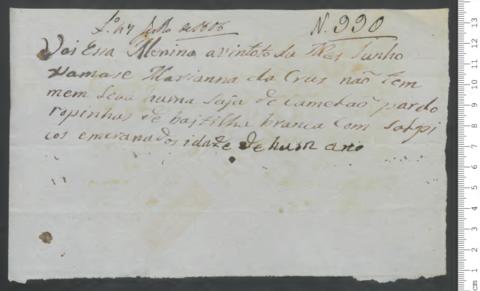 N. 990
Vai Essa Menina a vintoto de Mes Junho
xamase Marianna da Crus não tem
nem Leva huma saja de camelaõ pardo
ropinhas de bajtilha branca com salpi
cos emcarnados idaze de hum ano